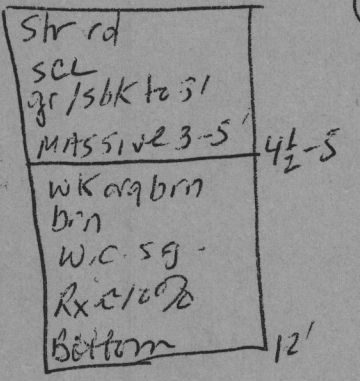 Str rd
SCL
gr/sbk to 5'
MASSIVE 3-5'
4½-5
WK org brn
brn
W.C. sg.
Rx @ 10%
Bottom
12'